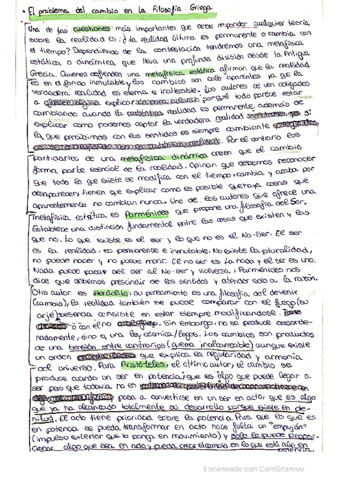 • El problema del cambio en la Filosofía Griega.
Una de las cuestiones más importantes que debe responder cualquier teoría
sobre la realidad es: ¿La realidad última es permanente o cambia con
el tiempo? Dependiendo de la contestación tendremos una metafísica
estática o dinámica, que lleva una profunda división desde la Antigua
Grecia. Quienes defienden una metafísica estática afirman que la realidad
es en el fondo inmutable, los cambios son solo aparentes ya que la
verdadera realidad es eterna e inalterable. Los autores de ven obligados
a explicar por qué todo parece estar
cambiando cuando la realidad es permanente, además de
explicar como podemos captar la verdadera realidad si
lo que percibimos con los sentidos es siempre cambiante
Por el contrario los
partidarios de una metafísica dinámica creen que el cambio
forma parte esencial de la realidad. Opinan que debemos reconocer
que todo lo que existe se modifica con el tiempo, cambia y acaba por
desaparecer, tienen que explicar como es posible que haya cosas que
aparentemente no cambian nunca. Uno de los autores que ofrece una
metafísica estática es Parménides que propone una filosofía del Ser.
Establece una distinción fundamental entre las cosas que existen y las
que no. Lo que existe es el ser y lo que no es el No-Ser. El ser
es la realidad, es permanente e inmutable. No existe la pluralidad,
no puede nacer y no puede morir. El no ser es la nada y el ser es uno.
Nada puede pasar del ser al No-Ser y viceversa. Parménides nos
dice que debemos prescindir de los sentidos y atender solo a la razón.
Otro autor es Heráclito, su pensamiento es una filosofía del devenir
(cambio), la realidad también se puede comparar con el fuego (su
arjé) presencia consiste en estar siempre modificandose.
o con el río Sin embargo, no se produce desorde-
nadamente, sino a una ley cósmica/logos. Los cambios son productos
de una tensión entre contrarios (guerra inalcanzable) aunque existe
un orden que explica la regularidad y armonía
del universo. Para Aristóteles, el último autor, el cambio se
produce cuando un ser en potencia, que es algo que puede llegar a
ser pero que todavía no es
pasa a convertirse en un ser en acto, que es algo
que ya ha alcanzado totalmente su desarrollo porque existe en ple-
nitud. El acto tiene prioridad sobre la potencia. Para que lo que es
en potencia se pueda transformar en acto hace falta un "empujón"
(impulso exterior que lo ponga en movimiento) y
algo que sea en acto y pueda crear el cambio en lo que está aún en
Escaneado con CamScanner